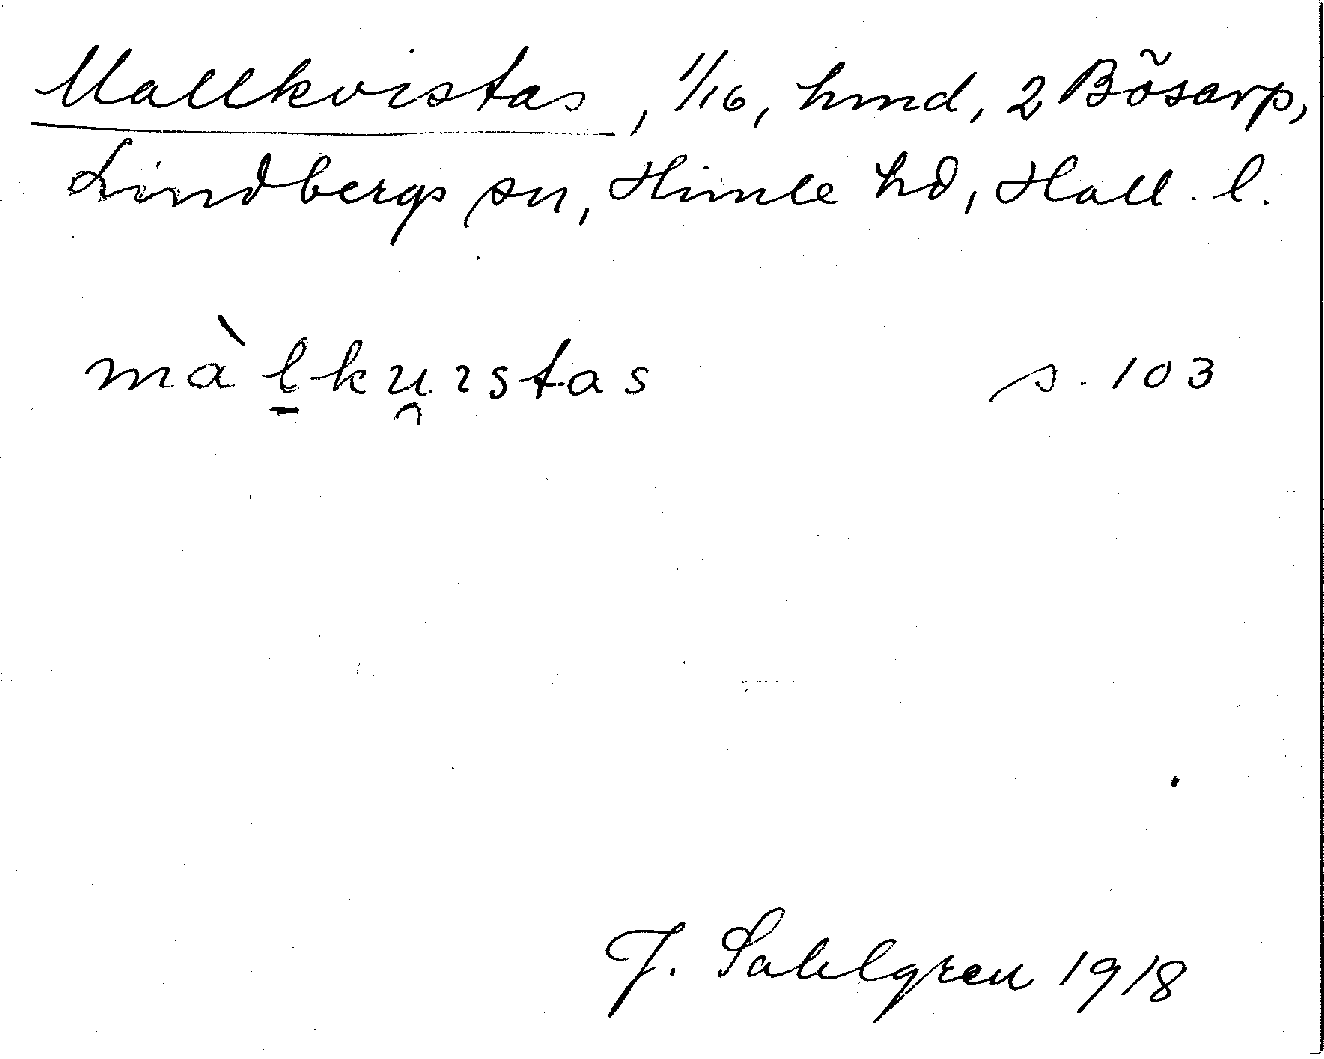 Mallkvistas, 1/16, hmd, 2 Bõsarp,
Lindbergs sn, Himle hd, Hall. l.
mà l̠ku̯ıstas s. 103
J. Sahlgren 1918